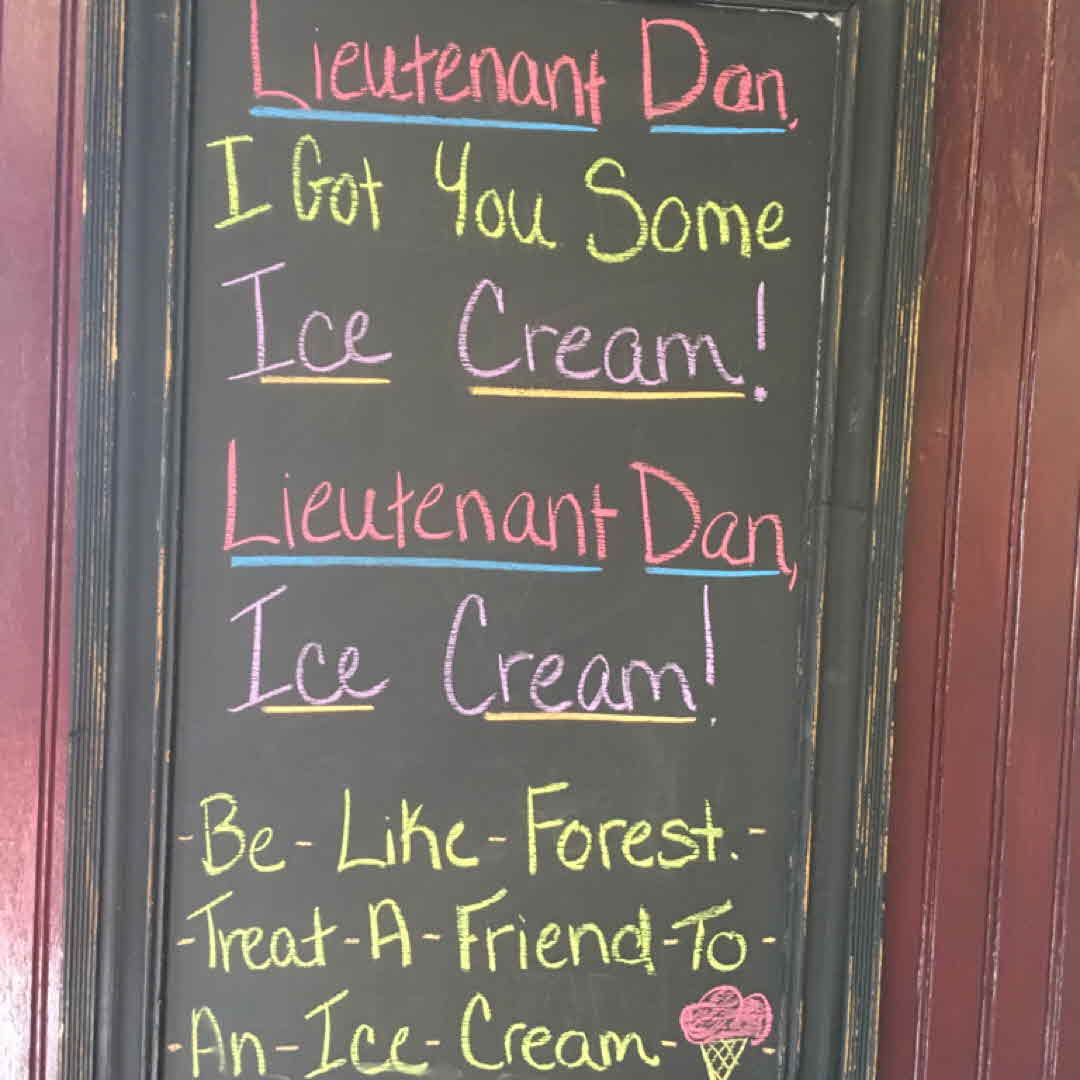 Lieutenant Dan,
I Got You Some
Ice Cream!
Lieutenant Dan,
Ice Cream!
-Be-Like-Forest.-
-Treat-A-Friend-To-
-An-Ice-Cream- -